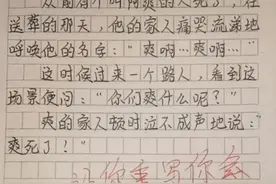 从前有个叫阿爽的人死了，在
送葬的那天，他的家人痛哭流涕地
呼唤他的名字：“爽啊…爽啊…”
这时候过来一个路人，看到这
场景便问：“你们爽什么呢？”
爽的家人顿时泣不成声地说：“
爽死了！”
你重写你